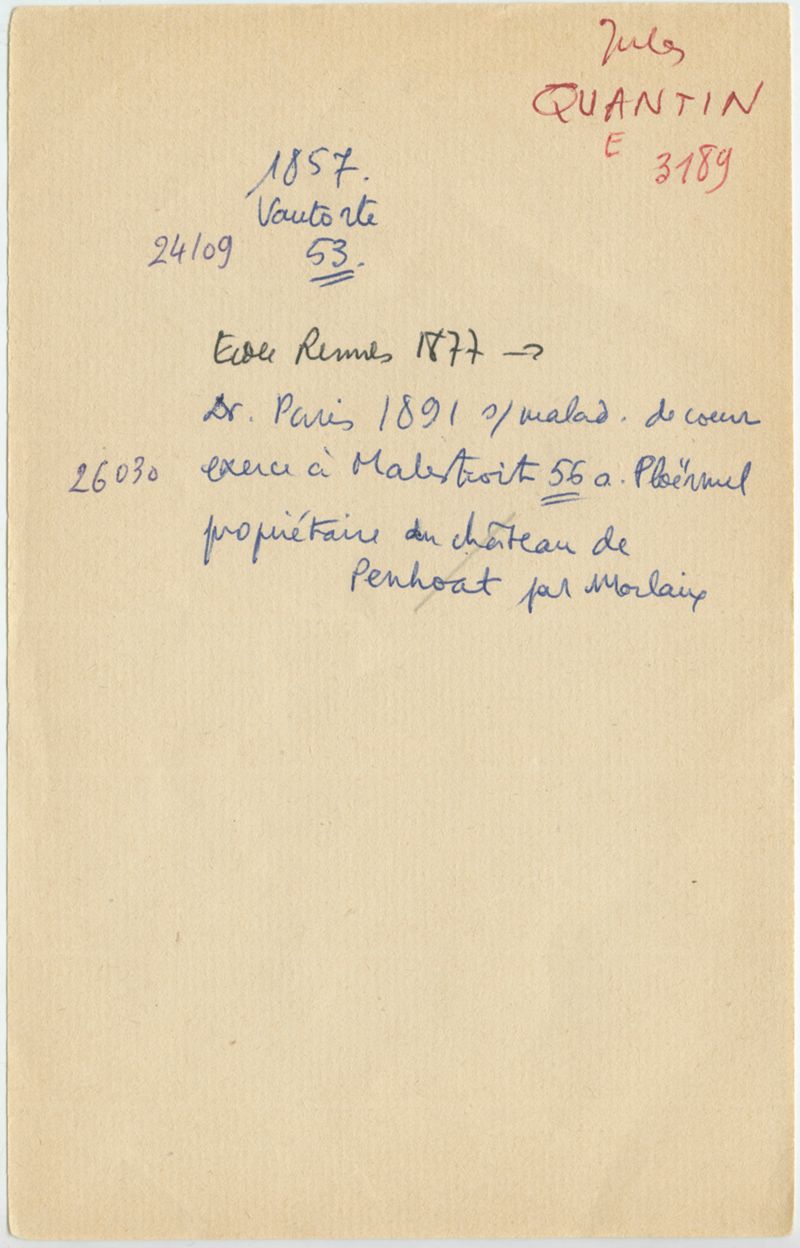 Jules
QUANTIN
E 3189
1857.
Vautorte
24/09 53.
Ecole Rennes 1877 →
Dr. Paris 1891 s/malad. de coeur
26030 exerce à Malestroit 56 a. Ploërmel
propriétaire du château de
Penhoat par Morlaix